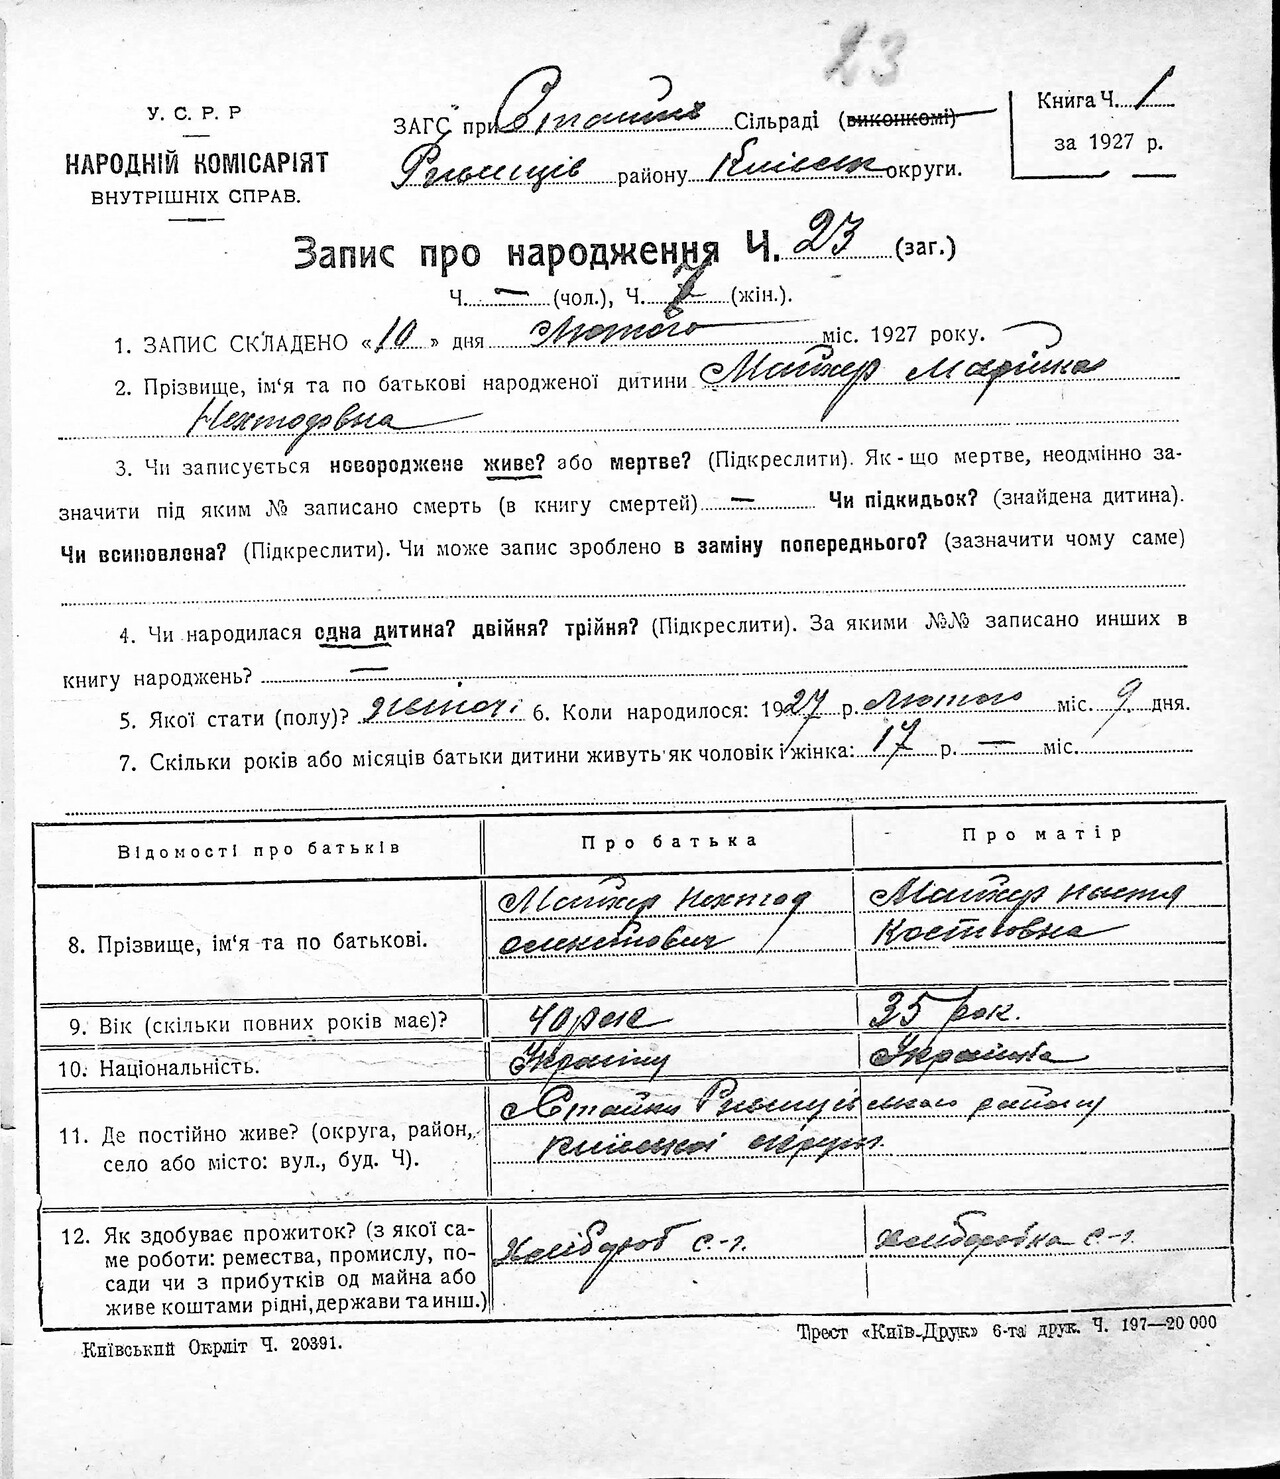 23
У. С. Р. Р
НАРОДНІЙ КОМІСАРІЯТ
ВНУТРІШНІХ СПРАВ.
ЗАГС при Стайки Сільраді (виконкомі)
Ржищів району Київськ округи.
Книга Ч. 1
за 1927 р.
Запис про народження Ч. 23 (заг.)
Ч. — (чол.), Ч. 7 (жін.).
1. ЗАПИС СКЛАДЕНО «10» дня Лютого міс. 1927 року.
2. Прізвище, ім‘я та по батькові народженої дитини Майхер Марійка
Нехтодовна
3. Чи записується новороджене живе? або мертве? (Підкреслити). Як-що мертве, неодмінно за-
значити під яким № записано смерть (в книгу смертей) — Чи підкидьок? (знайдена дитина).
Чи всиновлена? (Підкреслити). Чи може запис зроблено в заміну попереднього? (зазначити чому саме)
4. Чи народилася одна дитина? двійня? трійня? (Підкреслити). За якими №№ записано инших в
книгу народжень? —
5. Якої стати (полу)? жіночі 6. Коли народилося: 1927 р. Лютого міс. 9 дня.
7. Скільки років або місяців батьки дитини живуть як чоловік і жінка: 17 р. — міс.
Відомості про батьків
Про батька
Про матір
8. Прізвище, ім‘я та по батькові.
Майхер Нехтод
Майхер Настя
Костьовна
9. Вік (скільки повних років має)?
40 рок
35 рок.
10. Національність.
Українц
Українка
11. Де постійно живе? (округа, район,
село або місто: вул., буд. Ч).
Стайки Ржищівського району
Київської округи.
12. Як здобуває прожиток? (з якої са-
ме роботи: ремества, промислу, по-
сади чи з прибутків од майна або
живе коштами рідні, держави та инш.)
Хлібороб с.-г.
Хліборобка с.-г.
Київський Окрліт Ч. 20391.
Трест «Київ-Друк» 6-та друк. Ч. 197—20 000